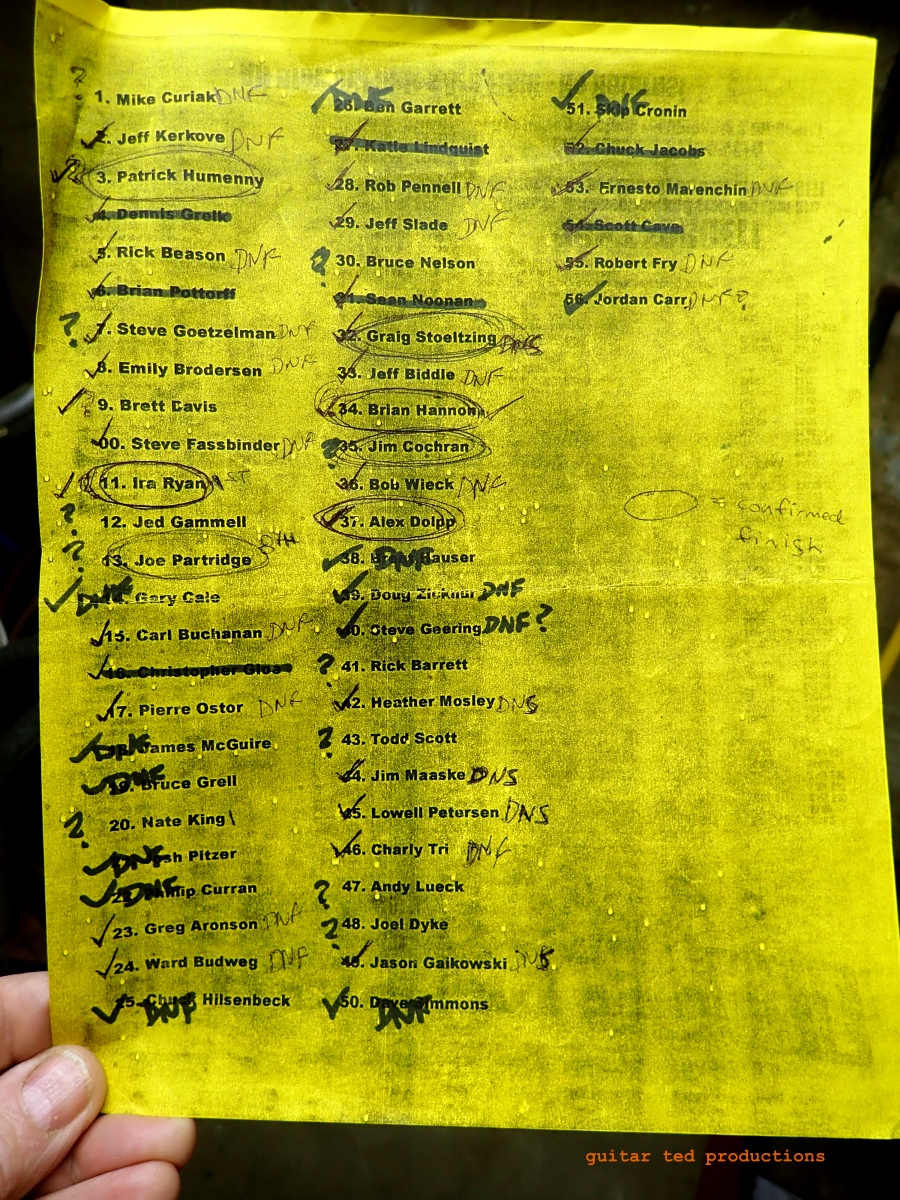 ?
1. Mike Curiak DNF
2. Jeff Kerkove DNF
3. Patrick Humenny
4. Dennis Grelk
5. Rick Beason DNF
6. Brian Pottorff
? 7. Steve Goetzelman DNF
8. Emily Brodersen DNF
? 9. Brett Davis
00. Steve Fassbinder DNF
11. Ira Ryan 1ST
? 12. Jed Gammell
? 13. Joe Partridge 5TH
DNF Gary Cale
15. Carl Buchanan DNF
16. Christopher Gloa
17. Pierre Ostor DNF
DNF James McGuire
19. DNF Bruce Grell
? 20. Nate King
DNF Pitzer
DNF Curran
23. Greg Aronson DNF
24. Ward Budweg DNF
25. Chuck Hilsenbeck
DNF
26. DNF Ben Garrett
27. Katie Lindquist
28. Rob Pennell DNF
29. Jeff Slade DNF
? 30. Bruce Nelson
31. Sean Noonan
32. Graig Stoeltzing DNS
33. Jeff Biddle DNF
34. Brian Hannon
? 35. Jim Cochran
36. Bob Wieck DNF
37. Alex Dolpp
38. DNF
39. Doug DNF
40. Steve Goering DNF?
? 41. Rick Barrett
42. Heather Mosley DNS
? 43. Todd Scott
44. Jim Maaske DNS
45. Lowell Petersen DNS
46. Charly Tri DNF
? 47. Andy Lueck
? 48. Joel Dyke
49. Jason Gaikowski DNS
50. Dave Simmons
DNF
51. Skip DNF Cronin
52. Chuck Jacobs
53. Ernesto Marenchin DNF
54. Scott Cave
55. Robert Fry DNF
56. Jordan Carr DNF?
= confirmed
finish
guitar ted productions